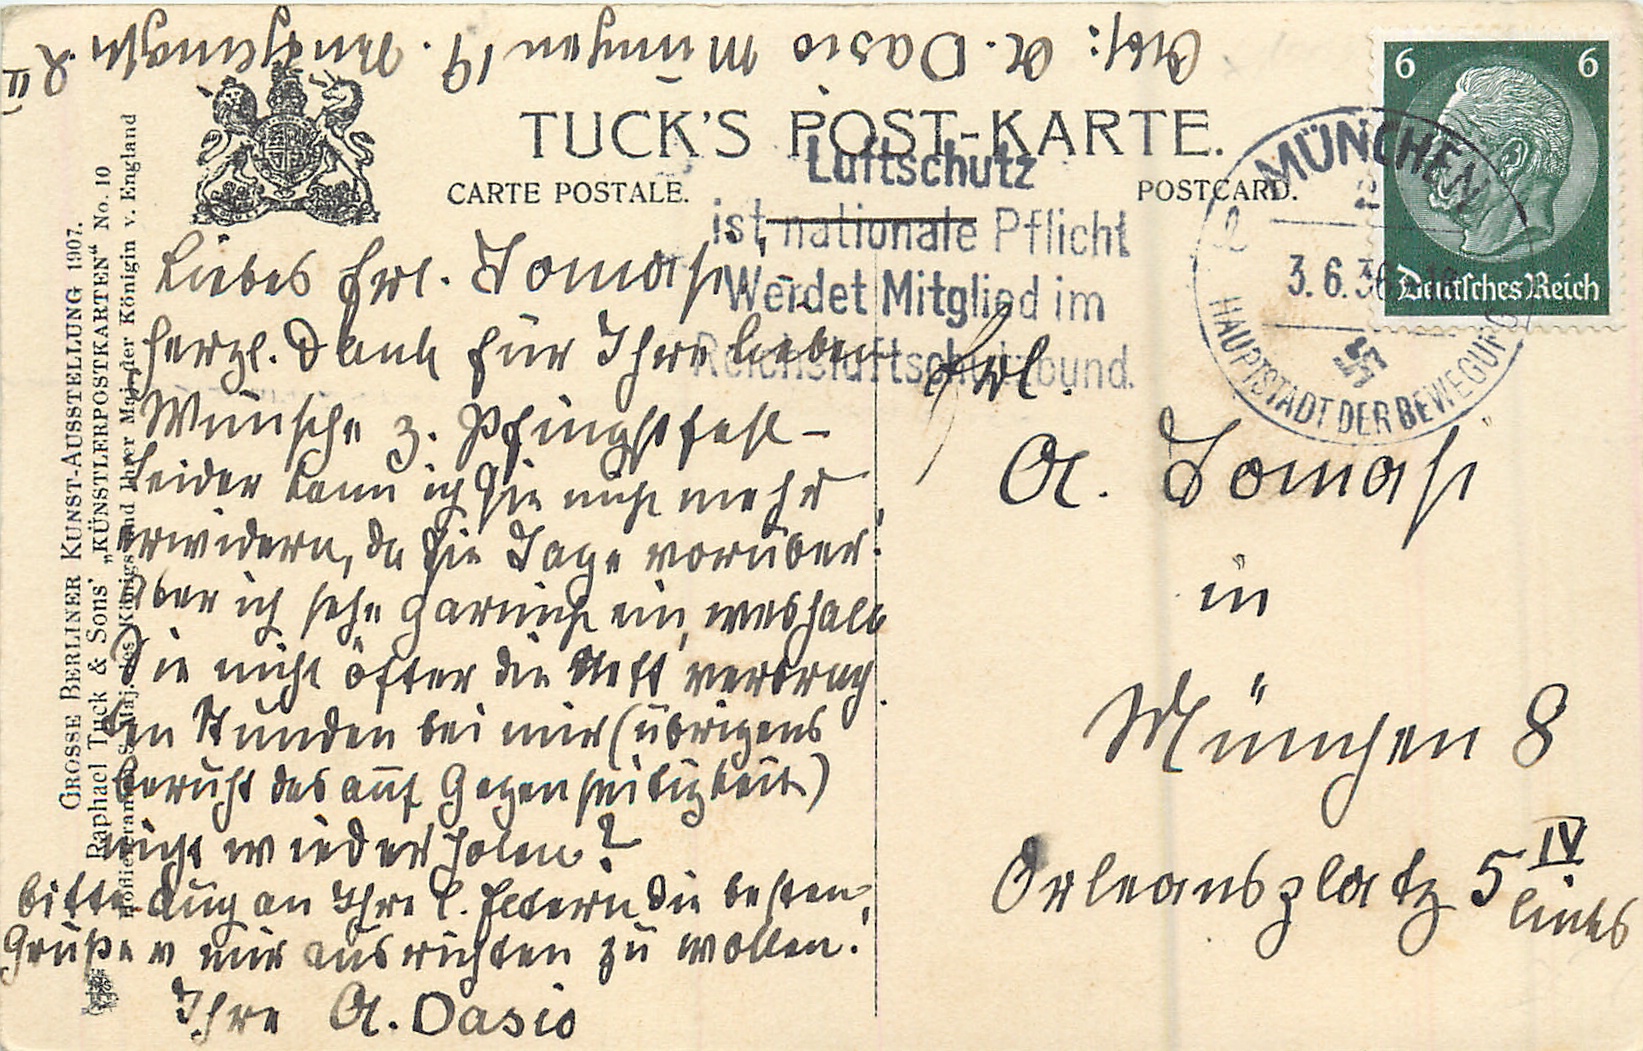 Abs: A. Dasio München 19. II
TUCK'S POST-KARTE.
CARTE POSTALE.
POSTCARD.
Luftschutz
ist nationale Pflicht
Werdet Mitglied im
Reichsluftschutzbund.
MÜNCHEN 2
3.6.36
HAUPTSTADT DER BEWEGUNG
6 6
Deutsches Reich
GROSSE BERLINER KUNST-AUSSTELLUNG 1907.
Raphael Tuck & Sons' „KÜNSTLERPOSTKARTEN“ No. 10
Hoflieferanten S. Maj. des Königs und Ihrer Maj. der Königin v. England
Liebes Frl. Tomasi,
herzl. Dank für Ihre lieben
Wünsche z. Pfingstfest –
Leider kann ich Sie nicht mehr
erwidern, da die Tage vorüber.
Aber ich sehe garnicht ein, weshalb
Sie nicht öfter die nett verbrach
ten Stunden bei mir (übrigens
beruht das auf Gegenseitigkeit)
nicht wiederholen?
bitte auch an Ihre l. Eltern die besten
Grüße v mir ausrichten zu wollen.
Ihre A. Dasio
Frl.
A. Tomasi
in
München 8
Orleansplatz 5 IV
links